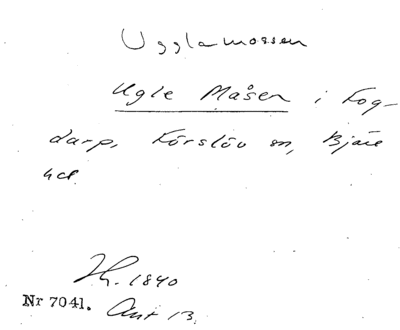 Ugglamossen
Ugle Måsen i Fog-
darp, Förslöv sn, Bjäre
hd
Lh. 1840
Nr 7041. Ant 13.